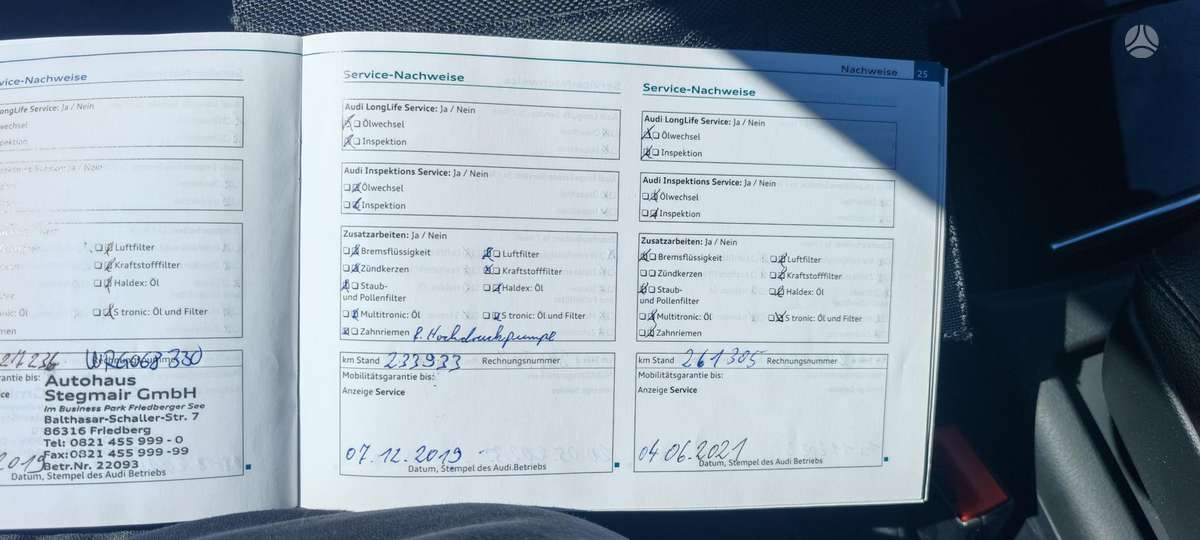 Nachweise 25
vice-Nachweise
ongLife Service: Ja / Nein
lwechsel
spektion
Luftfilter
Kraftstofffilter
Haldex: Öl
S tronic: Öl und Filter
men
217236
rantie bis:
ice
Autohaus
Stegmair GmbH
Im Business Park Friedberger See
Balthasar-Schaller-Str. 7
86316 Friedberg
Tel: 0821 455 999 - 0
Fax: 0821 455 999 -99
Betr.Nr. 22093
2019
Datum, Stempel des Audi Betriebs
Service-Nachweise
Audi LongLife Service: Ja / Nein
Ölwechsel
Inspektion
Audi Inspektions Service: Ja / Nein
Ölwechsel
Inspektion
Zusatzarbeiten: Ja / Nein
Bremsflüssigkeit Luftfilter
Zündkerzen Kraftstofffilter
Staub- Haldex: Öl
und Pollenfilter
Multitronic: Öl S tronic: Öl und Filter
Zahnriemen f. Hochdruckpumpe
km Stand 233933 Rechnungsnummer
Mobilitätsgarantie bis:
Anzeige Service
07.12.2019
Datum, Stempel des Audi Betriebs
Service-Nachweise
Audi LongLife Service: Ja / Nein
Ölwechsel
Inspektion
Audi Inspektions Service: Ja / Nein
Ölwechsel
Inspektion
Zusatzarbeiten: Ja / Nein
Bremsflüssigkeit Luftfilter
Zündkerzen Kraftstofffilter
Staub- Haldex: Öl
und Pollenfilter
Multitronic: Öl S tronic: Öl und Filter
Zahnriemen
km Stand 261305 Rechnungsnummer
Mobilitätsgarantie bis:
Anzeige Service
04.06.2021
Datum, Stempel des Audi Betriebs